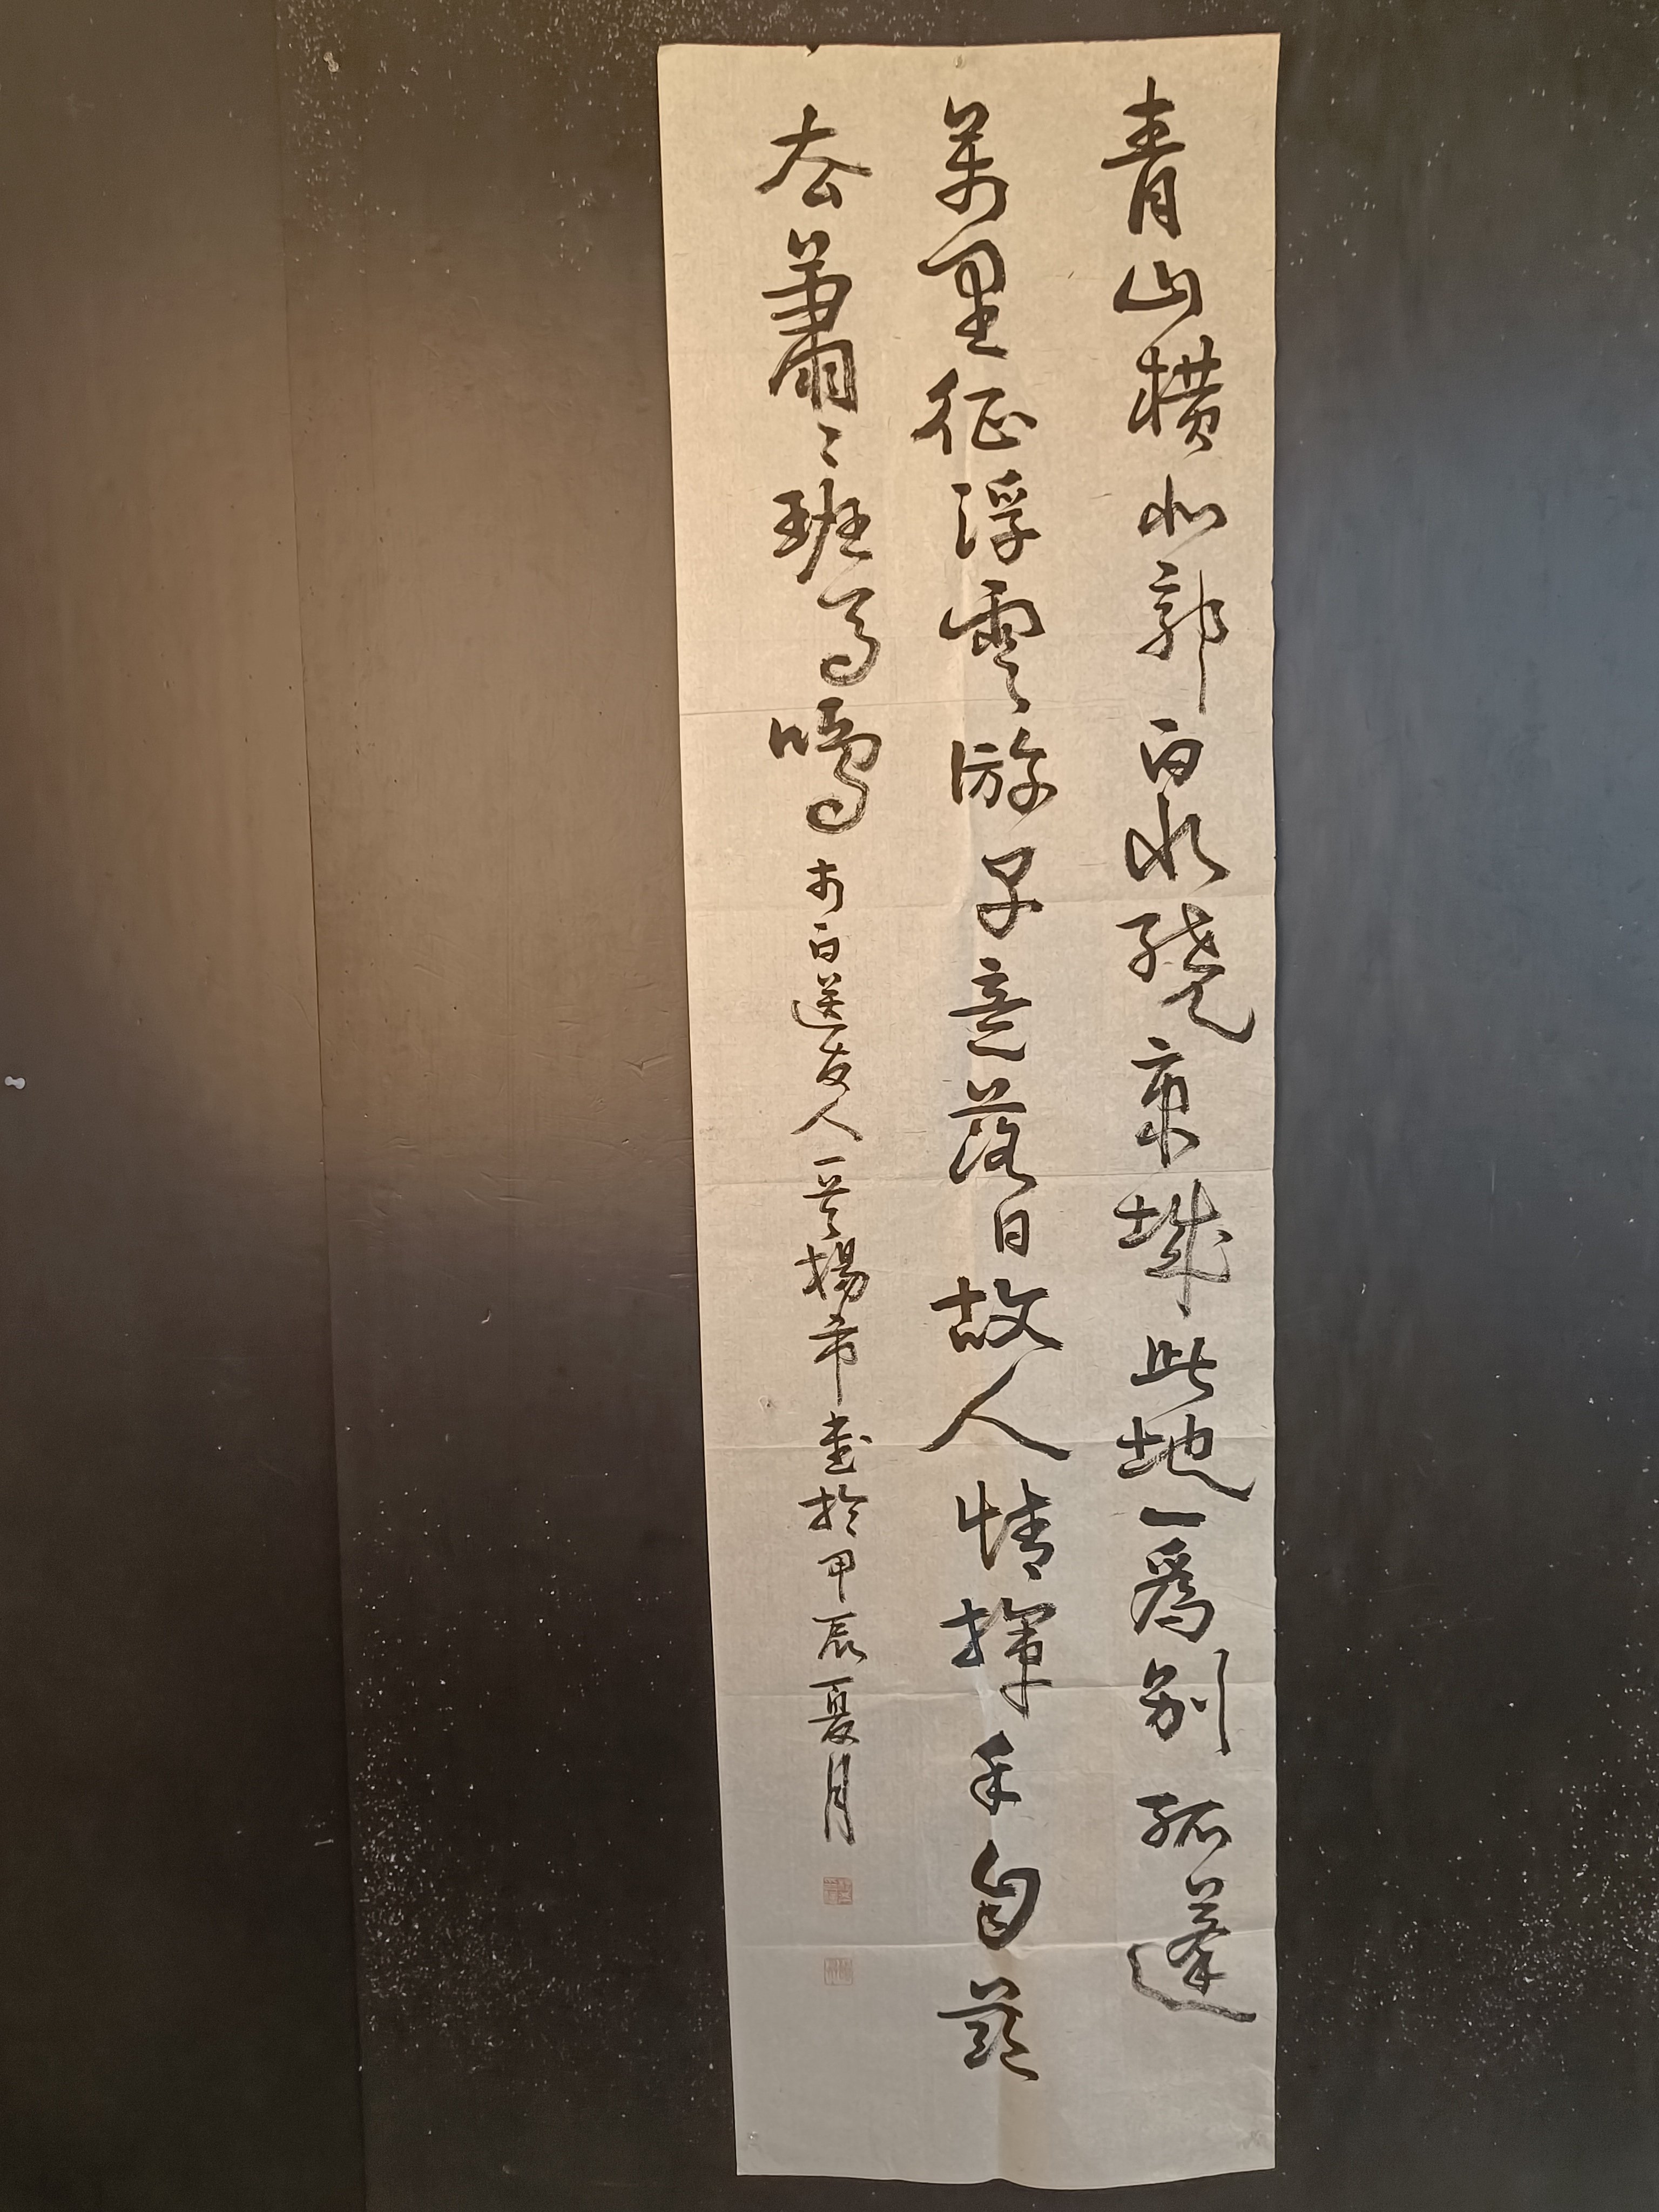 青山横北郭白水繞東城此地一爲别孤蓬
萬里征浮雲游子意落日故人情揮手自茲
去蕭〻班馬鳴 李白送友人一首楊希書於甲辰夏月